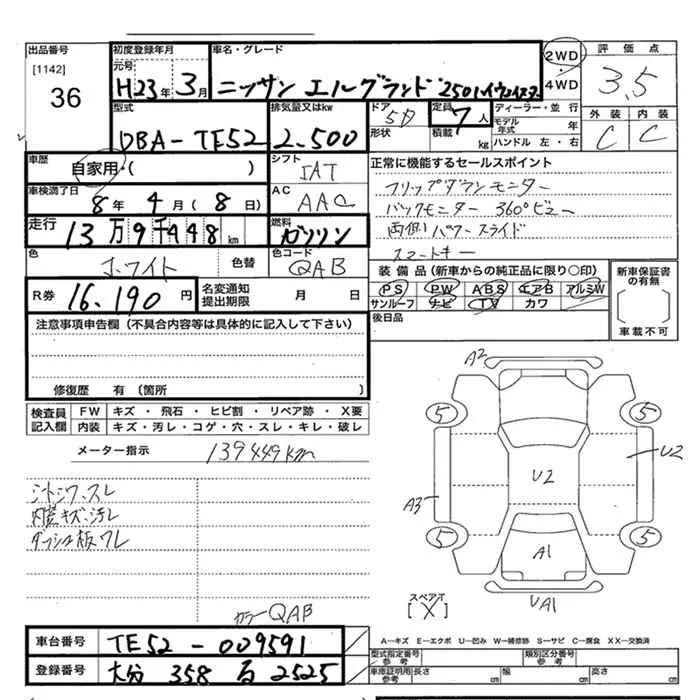 出品番号 初度登録年月 車名・グレード 2WD・4WD 評価点
[1142] 元号
36 H23年3月 ニッサン エルグランド 250ハイウェイスター 3.5
型式 排気量又はkw ドア 5D 形状 定員 7人 積載 kg ディーラー・並行 モデル年式 年 ハンドル 左・右 外装 内装
DBA-TE52 2.500 C C
車歴 自家用・( ) シフト IAT 正常に機能するセールスポイント
車検満了日 8年4月(8日) AC AAC フリップダウンモニター
バックモニター 360°ビュー
走行 13万9千448km 燃料 ガソリン 両側パワースライド
色 ホワイト 色替 色コード QAB スマートキー
R券 16.190円 名変通知提出期限 月 日 装備品(新車からの純正品に限り○印) 新車保証書の有無
PS PW ABS エアB アルミW
サンルーフ ナビ TV カワ
注意事項申告欄(不具合内容等は具体的に記入して下さい) 後日品 車載不可
修復歴 有(箇所 )
検査員記入欄 FW キズ・飛石・ヒビ割・リペア跡・X要
内装 キズ・汚レ・コゲ・穴・スレ・キレ・破レ
メーター指示 139449km
シートシワ、スレ
内装キズ、汚レ
ダッシュ板ワレ
カラーQAB
A2
5 5
U2 U2
A3
5 5
A1
UA1
スペアT
[X]
車台番号 TE52-009591
登録番号 大分 358 る 2525
A-キズ E-エクボ U-凹み W-補修跡 S-サビ C-腐食 XX-交換済
型式指定番号 参考 類別区分番号 参考
車庫証明用参考 長さ cm 幅 cm 高さ cm